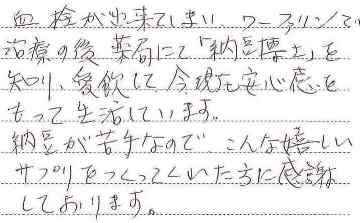 血栓が出来てしまい ワーファリンで
治療の後 薬局にて「納豆博士」を
知り、愛飲して 今現在安心感を
もって生活しています。
納豆が苦手なので こんな嬉しい
サプリをつくってくれた方に感謝
しております。